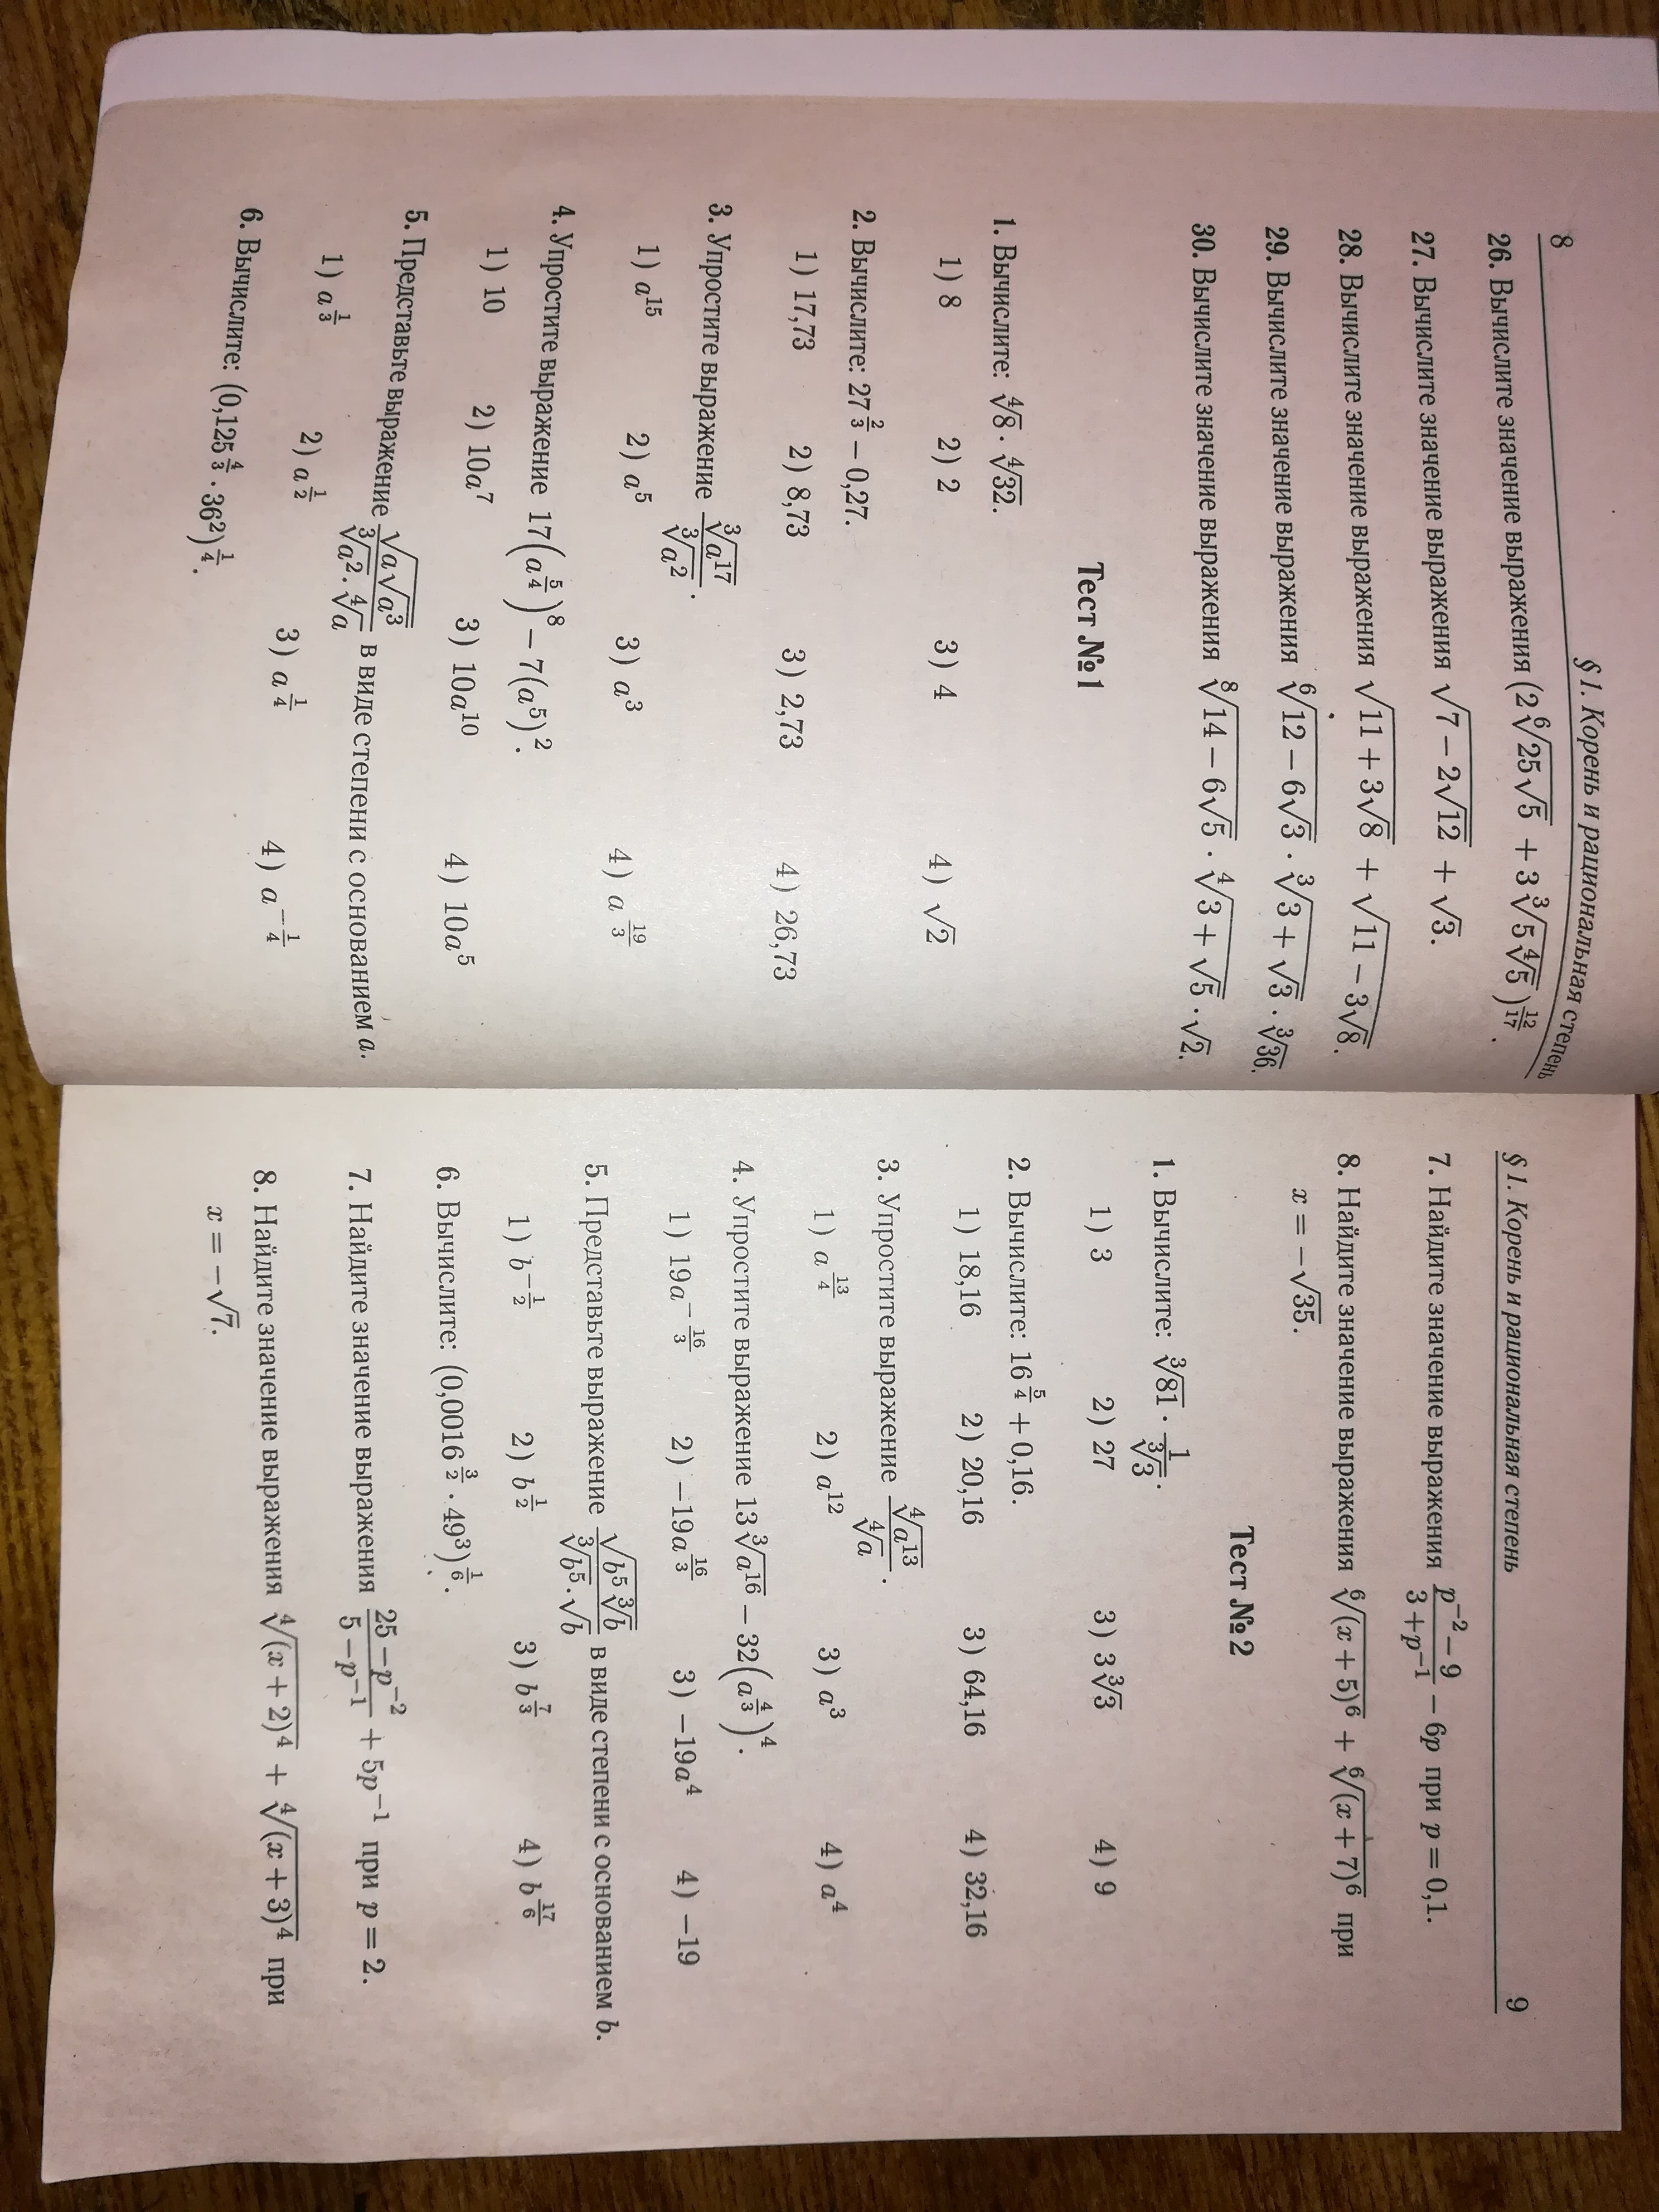 8
§ 1. Корень и рациональная степень
26. Вычислите значение выражения (2⁶√(25√5) + 3∛(5⁴√5))^(12/17).
27. Вычислите значение выражения √(7 − 2√12) + √3.
28. Вычислите значение выражения √(11 + 3√8) + √(11 − 3√8).
29. Вычислите значение выражения ⁶√(12 − 6√3) · ∛(3 + √3) · ∛36.
30. Вычислите значение выражения ⁸√(14 − 6√5) · ⁴√(3 + √5) · √2.
Тест №1
1. Вычислите: ⁴√8 · ⁴√32.
1) 8 2) 2 3) 4 4) √2
2. Вычислите: 27^(2/3) − 0,27.
1) 17,73 2) 8,73 3) 2,73 4) 26,73
3. Упростите выражение ∛(a¹⁷)/∛(a²).
1) a¹⁵ 2) a⁵ 3) a³ 4) a^(19/3)
4. Упростите выражение 17(a^(5/4))⁸ − 7(a⁵)².
1) 10 2) 10a⁷ 3) 10a¹⁰ 4) 10a⁵
5. Представьте выражение √(a√(a³))/(∛(a²) · ⁴√a) в виде степени с основанием a.
1) a^(1/3) 2) a^(1/2) 3) a^(1/4) 4) a^(−1/4)
6. Вычислите: (0,125^(4/3) · 36²)^(1/4).
§ 1. Корень и рациональная степень
9
7. Найдите значение выражения (p⁻² − 9)/(3 + p⁻¹) − 6p при p = 0,1.
8. Найдите значение выражения ⁶√((x + 5)⁶) + ⁶√((x + 7)⁶) при
x = −√35.
Тест №2
1. Вычислите: ∛81 · 1/∛3.
1) 3 2) 27 3) 3∛3 4) 9
2. Вычислите: 16^(5/4) + 0,16.
1) 18,16 2) 20,16 3) 64,16 4) 32,16
3. Упростите выражение ⁴√(a¹³)/⁴√a.
1) a^(13/4) 2) a¹² 3) a³ 4) a⁴
4. Упростите выражение 13∛(a¹⁶) − 32(a^(4/3))⁴.
1) 19a^(−16/3) 2) −19a^(16/3) 3) −19a⁴ 4) −19
5. Представьте выражение √(b⁵∛b)/(∛(b⁵) · √b) в виде степени с основанием b.
1) b^(−1/2) 2) b^(1/2) 3) b^(7/3) 4) b^(17/6)
6. Вычислите: (0,0016^(3/2) · 49³)^(1/6).
7. Найдите значение выражения (25 − p⁻²)/(5 − p⁻¹) + 5p⁻¹ при p = 2.
8. Найдите значение выражения ⁴√((x + 2)⁴) + ⁴√((x + 3)⁴) при
x = −√7.